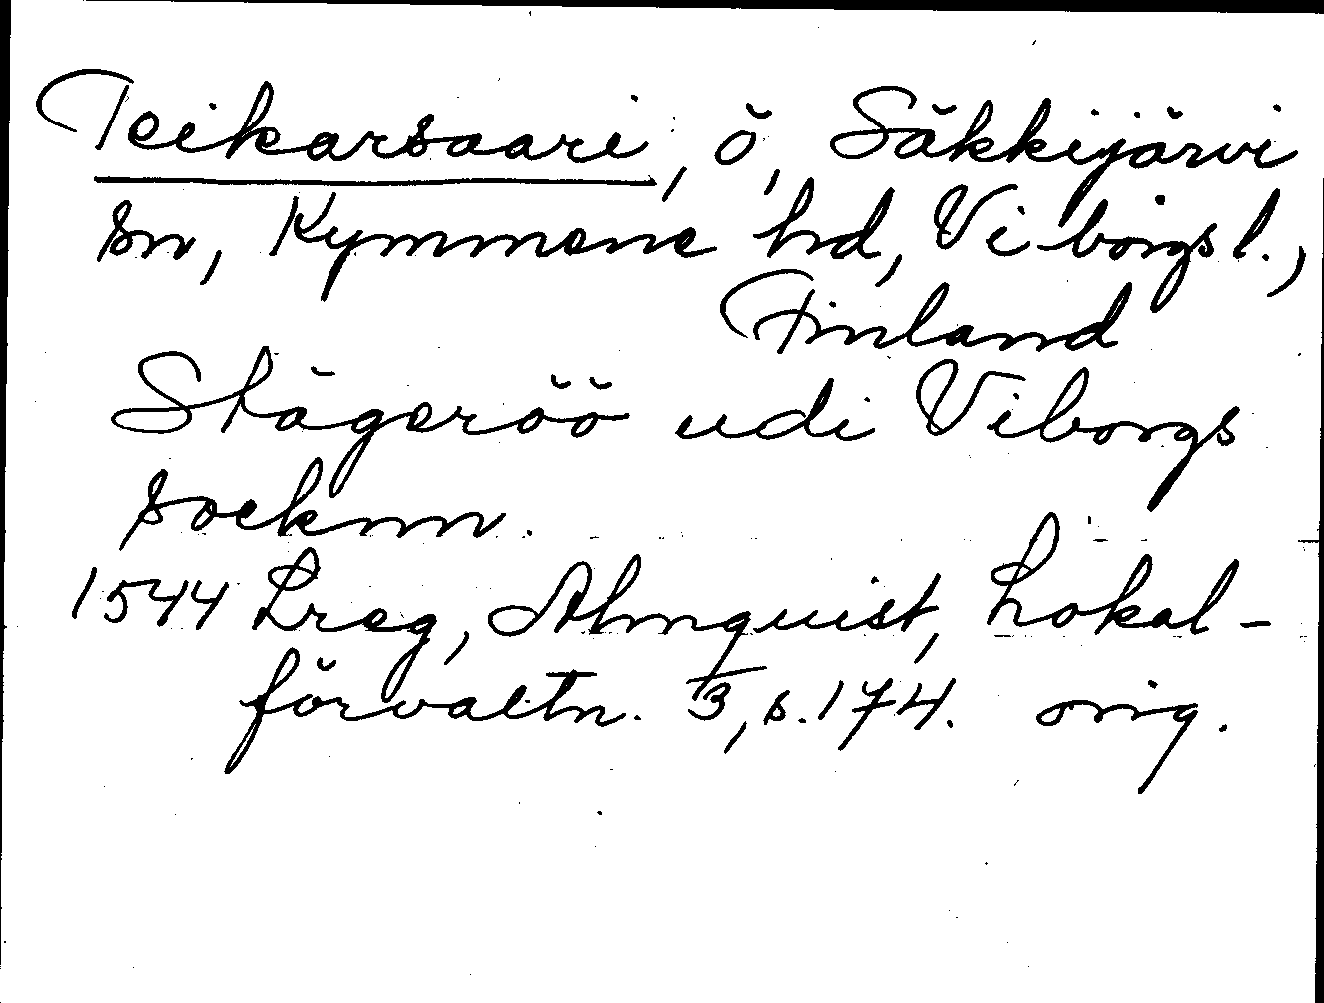 Teikarsaari, ö, Säkkijärvi
sn, Kymmene hd, Viborgs l.,
Finland
Stägeröö udi Viborgs
socknn.
1544 Lreg, Almquist, Lokal-
förvaltn. 3, s. 174. orig.